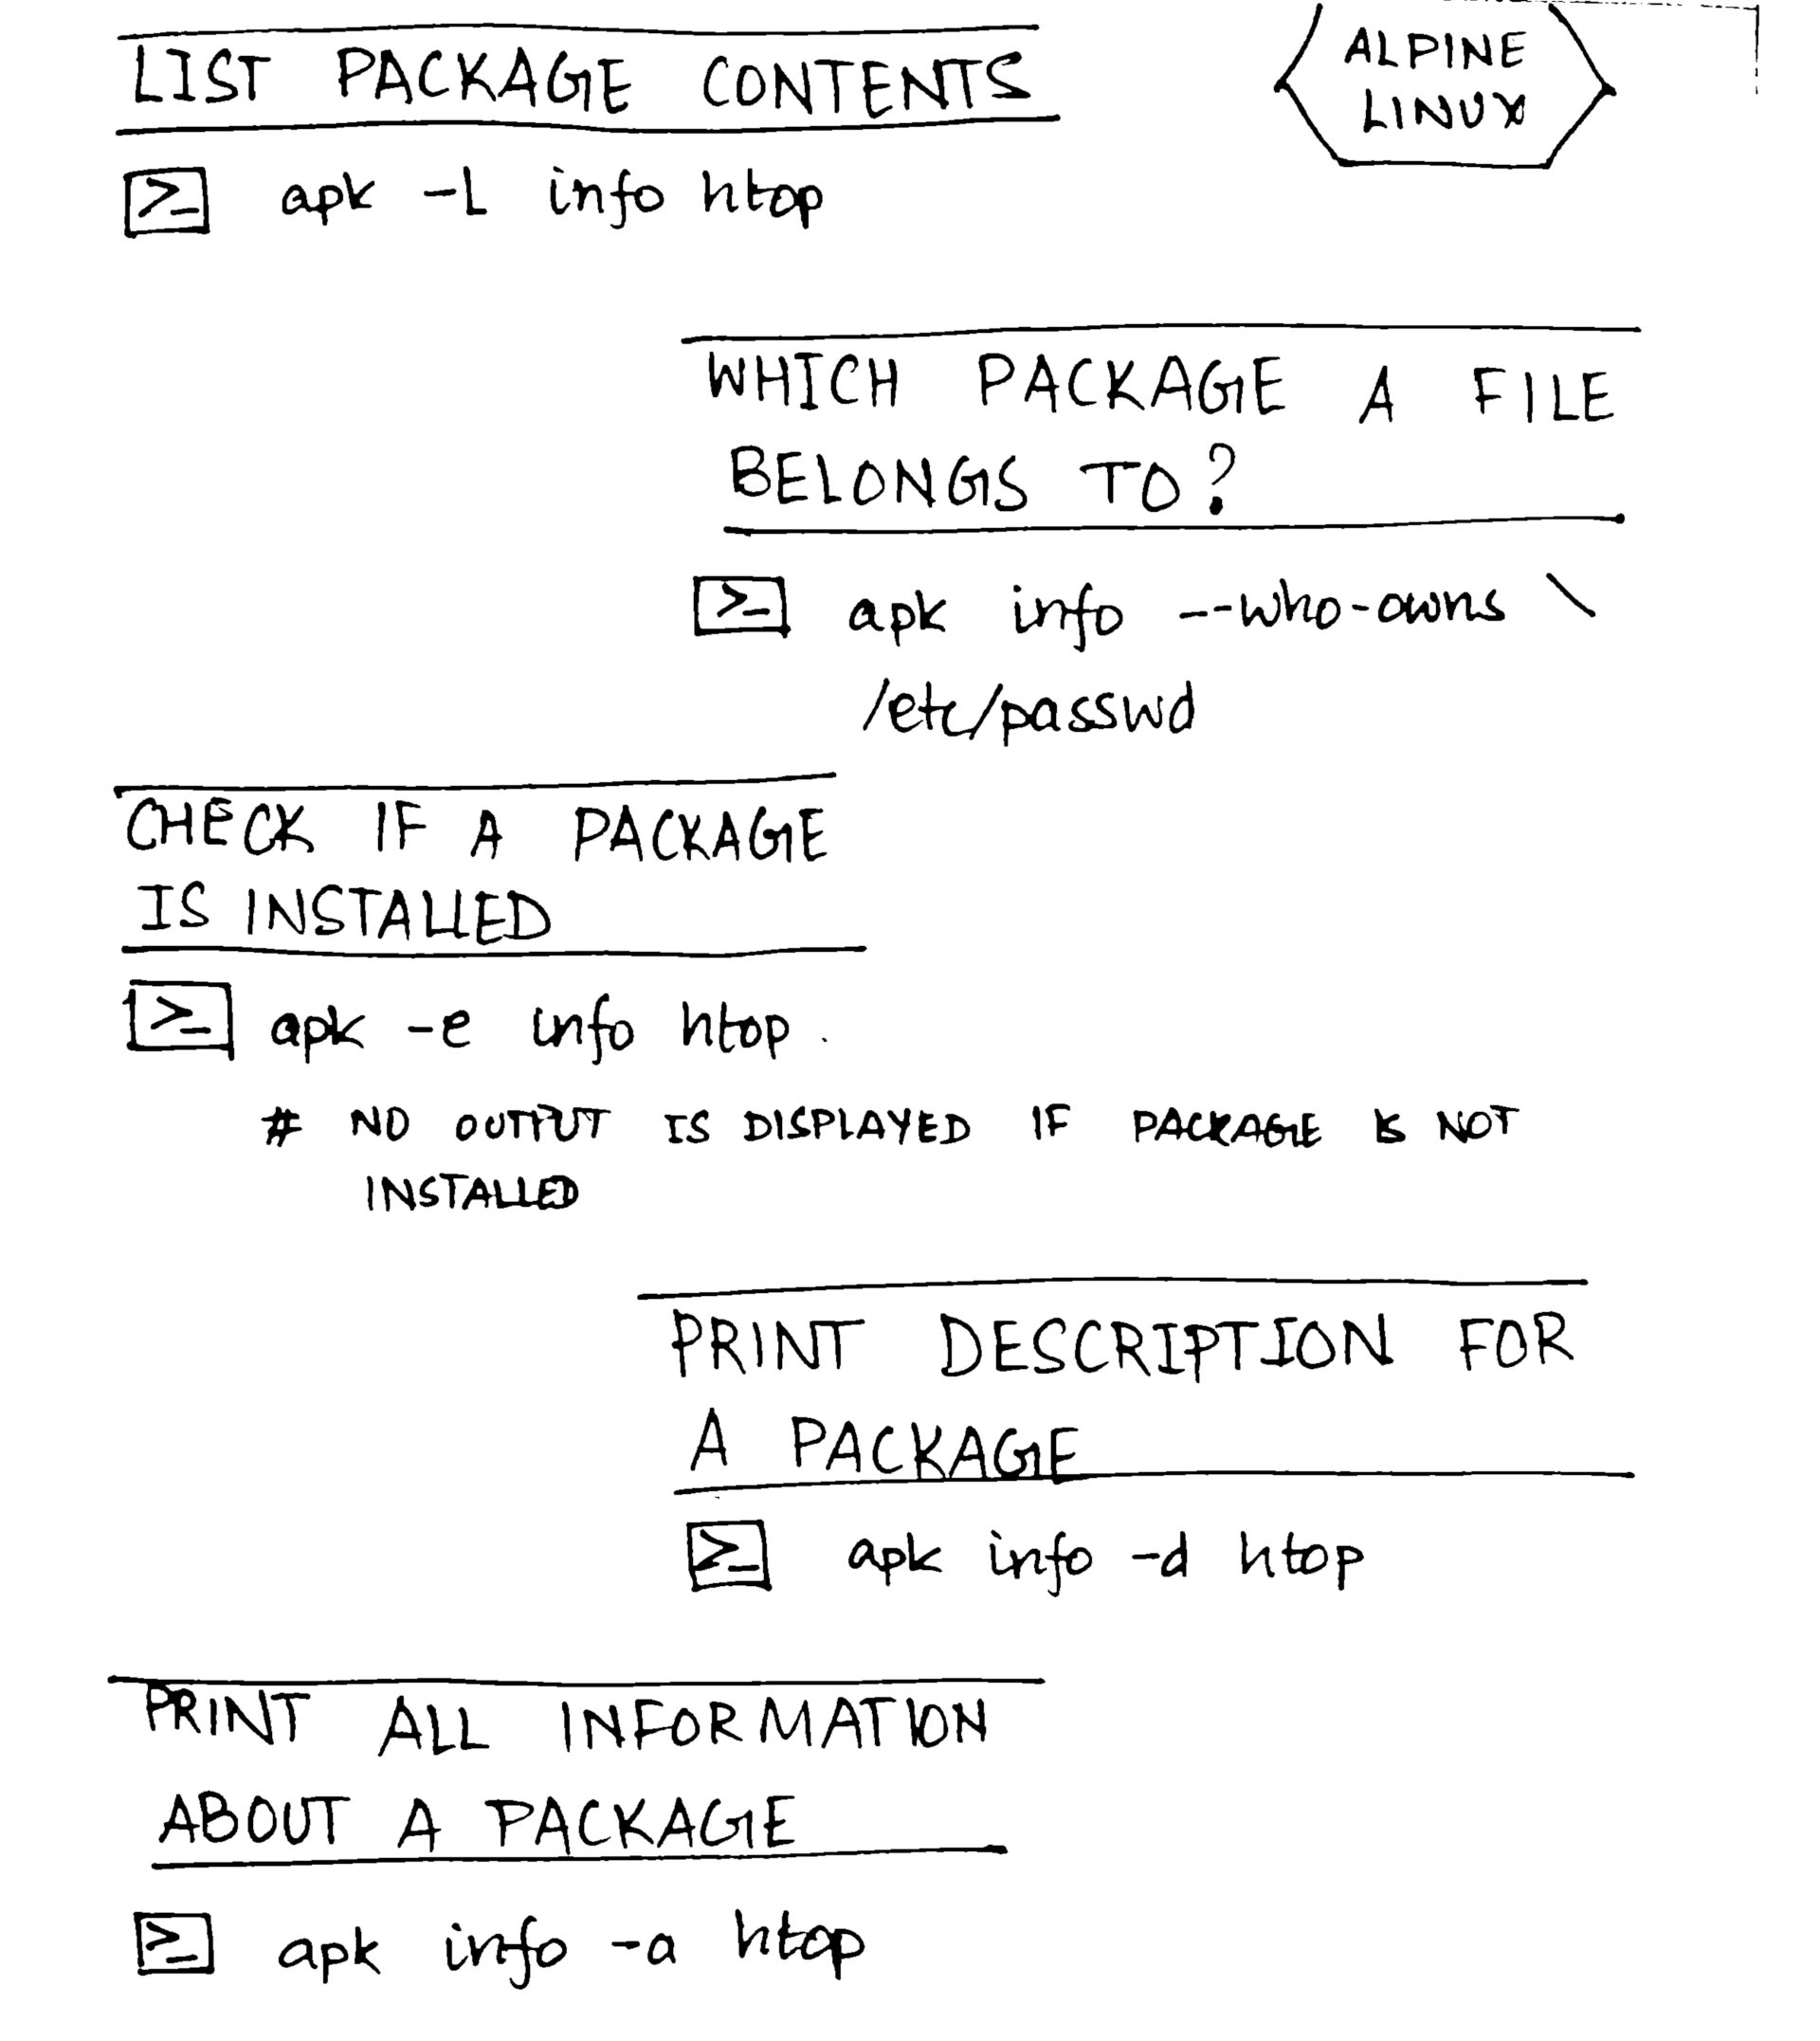 LIST PACKAGE CONTENTS
ALPINE
LINUX
>_ apk -L info htop
WHICH PACKAGE A FILE
BELONGS TO?
>_ apk info --who-owns \
/etc/passwd
CHECK IF A PACKAGE
IS INSTALLED
>_ apk -e info htop.
# NO OUTPUT IS DISPLAYED IF PACKAGE IS NOT
INSTALLED
PRINT DESCRIPTION FOR
A PACKAGE
>_ apk info -d htop
PRINT ALL INFORMATION
ABOUT A PACKAGE
>_ apk info -a htop